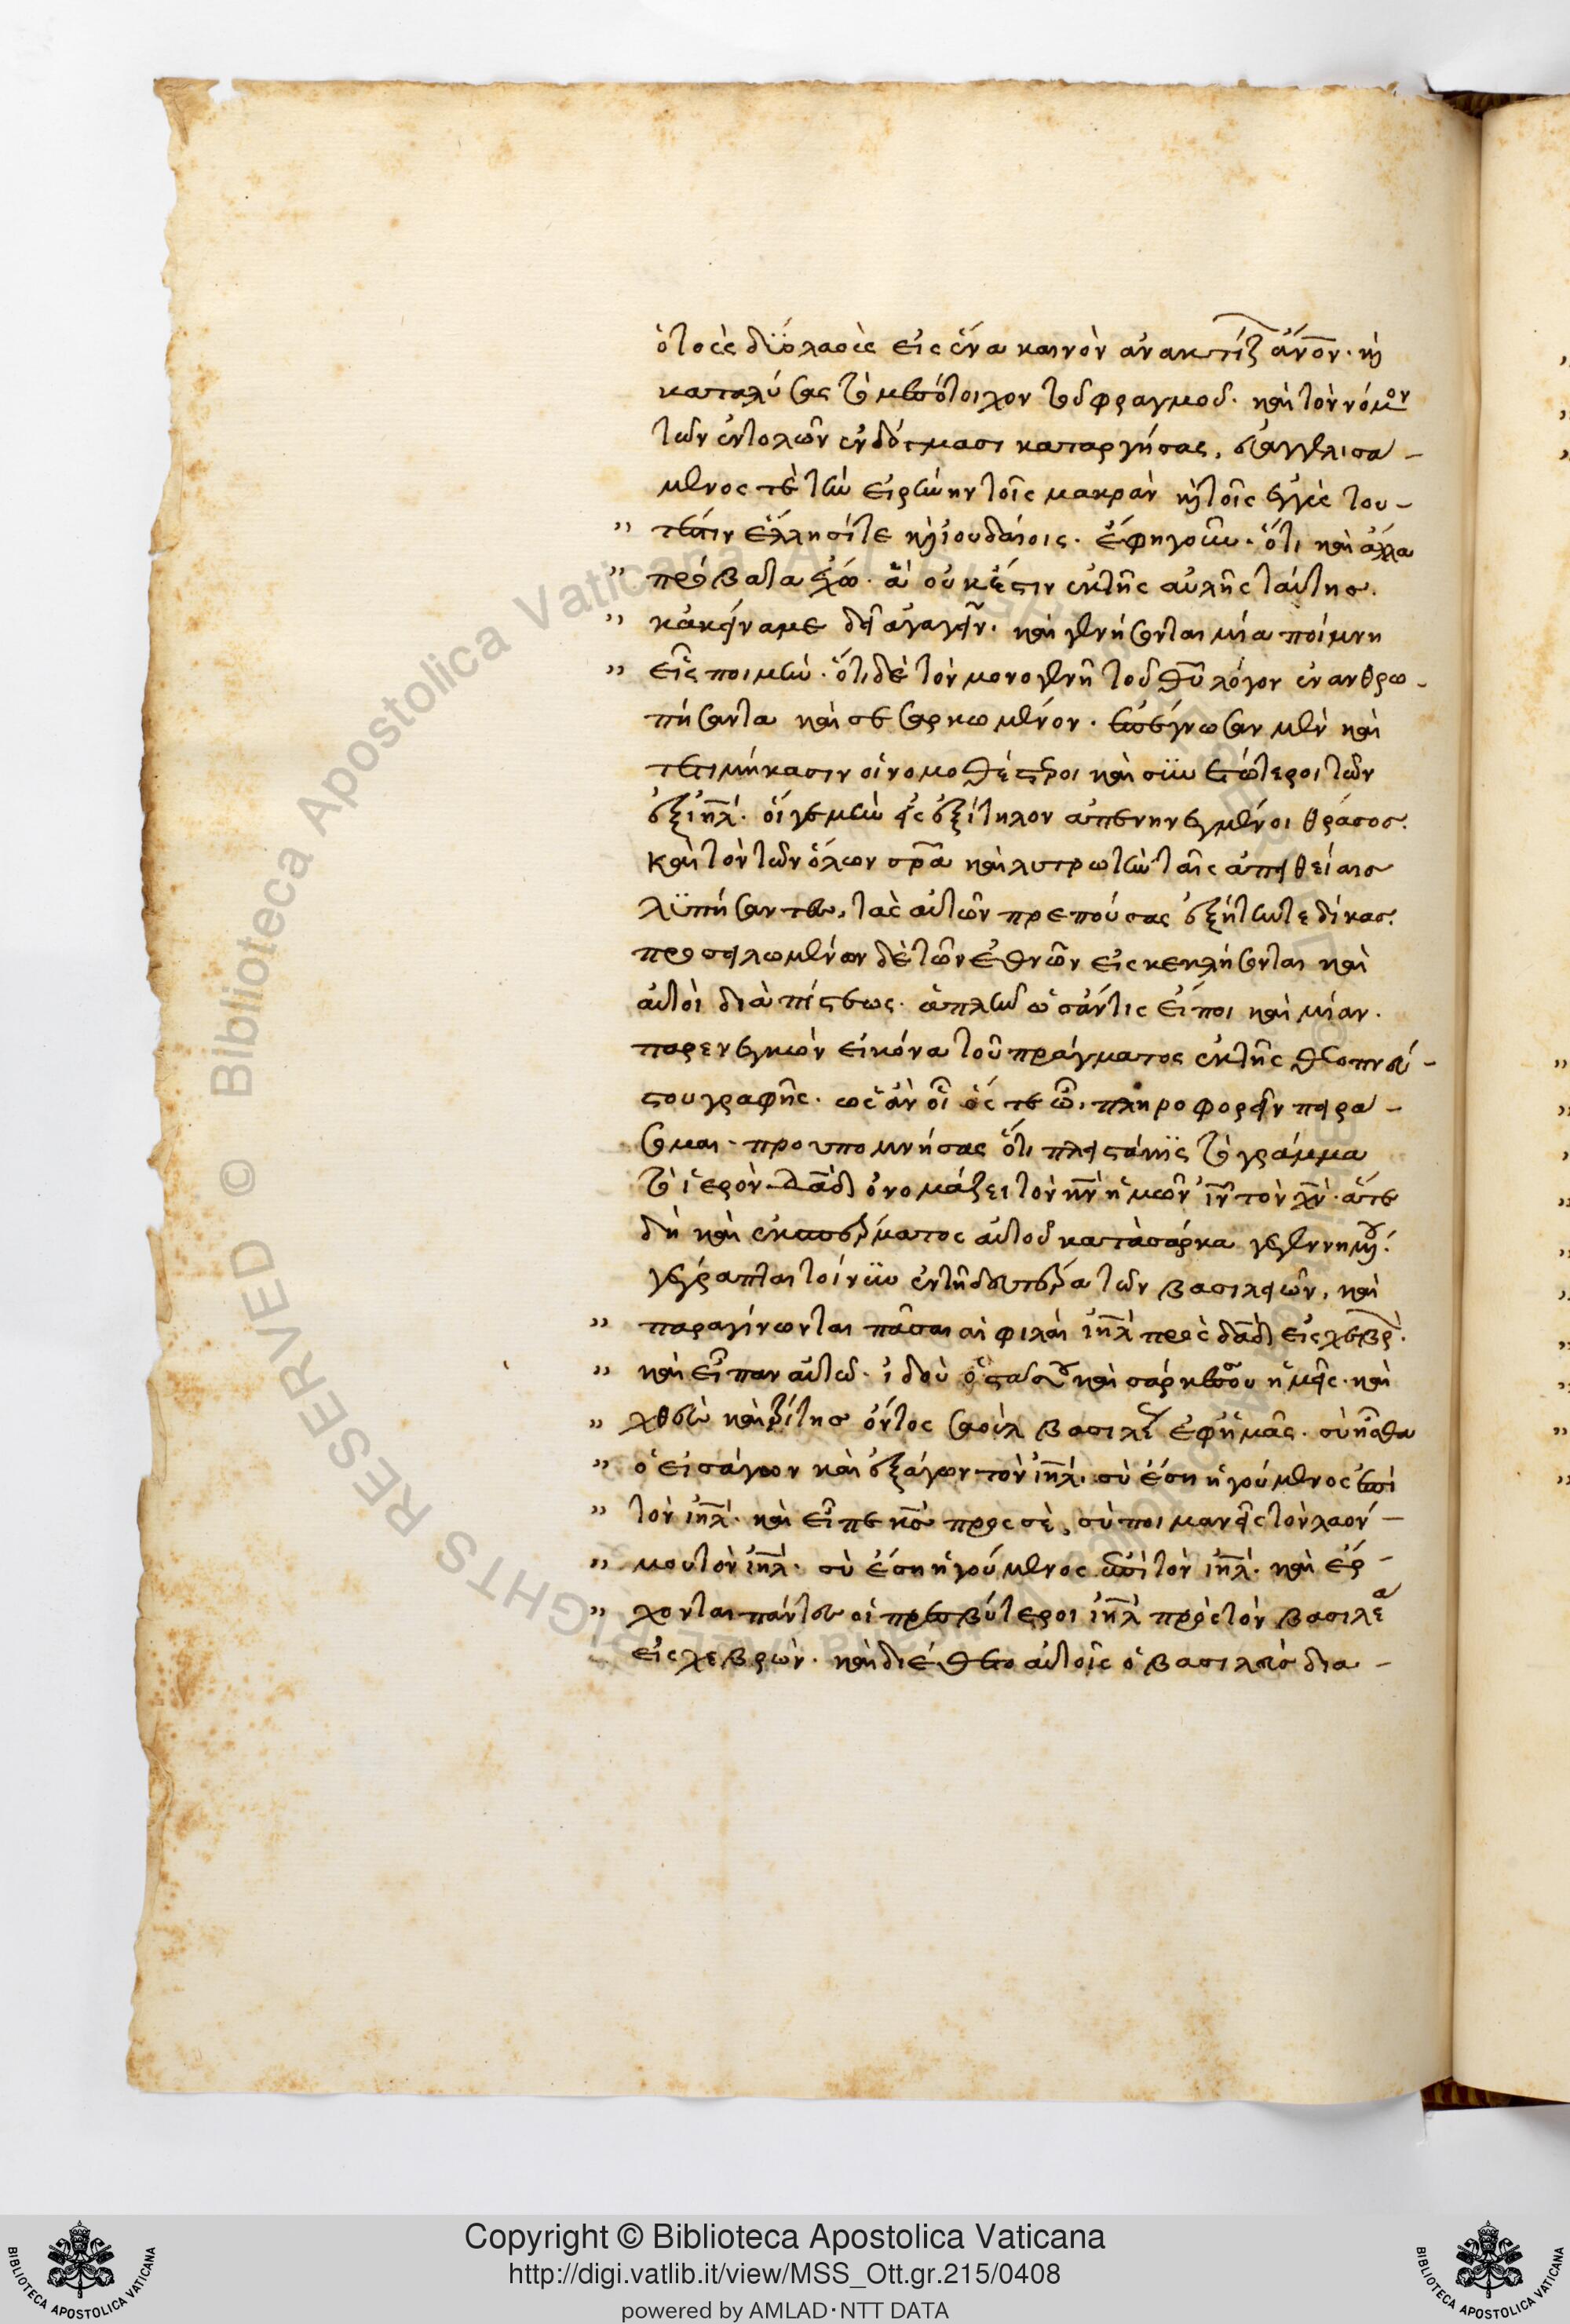 ὁ τοὺς δύο λαοὺς εἰς ἕνα καινὸν ἀνακτίζ ἄνον. κỳ
καταλύσας τὸ μεσότοιχον τοῦ φραγμοῦ. καὶ τὸν νόμον
τῶν ἐντολῶν ἐν δόγμασι καταργήσας, εὐαγγελισα-
μενός τε τὴν εἰρήνην τοῖς μακρὰν καὶ τοῖς ἐγγὺς του-
" τέστιν ἕλλησί τε καὶ ἰουδαίοις. ἔφη γοῦν. ὅτι καὶ ἄλλα
" πρόβατα ἔχω. ἃ οὐκ ἔστιν ἐκ τῆς αὐλῆς ταύτης.
" κἀκεῖνα με δεῖ ἀγαγεῖν. καὶ γενήσονται μία ποίμνη
" εἷς ποιμήν. ὅτι δὲ τὸν μονογενῆ τοῦ θυ λόγον ἐνανθρω-
πήσαντα καὶ σεσαρκωμένον. ἐπέγνωσαν μὲν καὶ
τετιμήκασιν οἱ νομοθέστεροι καὶ συνετώτεροι τῶν
ἐξ ιηλ. οἵ γε μὴν εἰς ἐξίτηλον ἀπενηνεγμένοι θράσος.
καὶ τὸν τῶν ὅλων σρα καὶ λυτρωτὴν ταῖς ἀπειθείαις
λυπήσαντες, τὰς αὐτῶν πρεπούσας ἐξήτηντε δίκας.
προσηλωμένων δὲ τῶν ἐθνῶν εἰσκεκλήσονται καὶ
αὐτοὶ διὰ πίστεως. ἁπλῆν ὡσάντις εἴποι καὶ μίαν.
παρενεγκὼν εἰκόνα τοῦ πράγματος ἐκ τῆς θεοπνεύ-
στου γραφῆς. ὡς ἂν οἷός τε ὦ, πληροφορεῖν πειρά-
σομαι. προυπομνήσας ὅτι πλειστάκις τὸ γράμμα
τὸ ἱερὸν δαδ ὀνομάζει τὸν κν ἡμῶν ιν τὸν χν. ἅτε
δὴ καὶ ἐκ σπέρματος αὐτοῦ κατὰ σάρκα γεγεννημ.
γέγραπται τοίνυν ἐν τῇ δευτέρα τῶν βασιλειῶν, καὶ
" παραγίνωνται πᾶσαι αἱ φιλαὶ ιηλ πρὸς δαδ εἰς χεβρ.
" καὶ εἶπαν αὐτῶ. ἰδοὺ ὀστᾶ σου καὶ σάρκες σου ἡμεῖς. καὶ
" χθὲς καὶ τρίτης ὄντος σαοὺλ βασιλε ἐφ ἡμᾶς. σὺ ἦσθα
" ὁ εἰσάγων καὶ ἐξάγων τὸν ιηλ. σὺ ἔση ἡγούμενος ἐπὶ
" τὸν ιηλ. καὶ εἶπε κς πρὸς σὲ, σὺ ποιμανεῖς τὸν λαόν-
" μου τὸν ιηλ. σὺ ἔση ἡγούμενος ἐπὶ τὸν ιηλ. καὶ ἔρ-
" χονται πάντες οἱ πρεσβύτεροι ιηλ πρὸς τὸν βασιλέα
εἰς χεβρὼν. καὶ διέθετο αὐτοῖς ὁ βασιλεὺς δια-
© Biblioteca Apostolica Vaticana ALL RIGHTS RESERVED
Copyright © Biblioteca Apostolica Vaticana
http://digi.vatlib.it/view/MSS_Ott.gr.215/0408
powered by AMLAD·NTT DATA
BIBLIOTECA APOSTOLICA VATICANA
BIBLIOTECA APOSTOLICA VATICANA